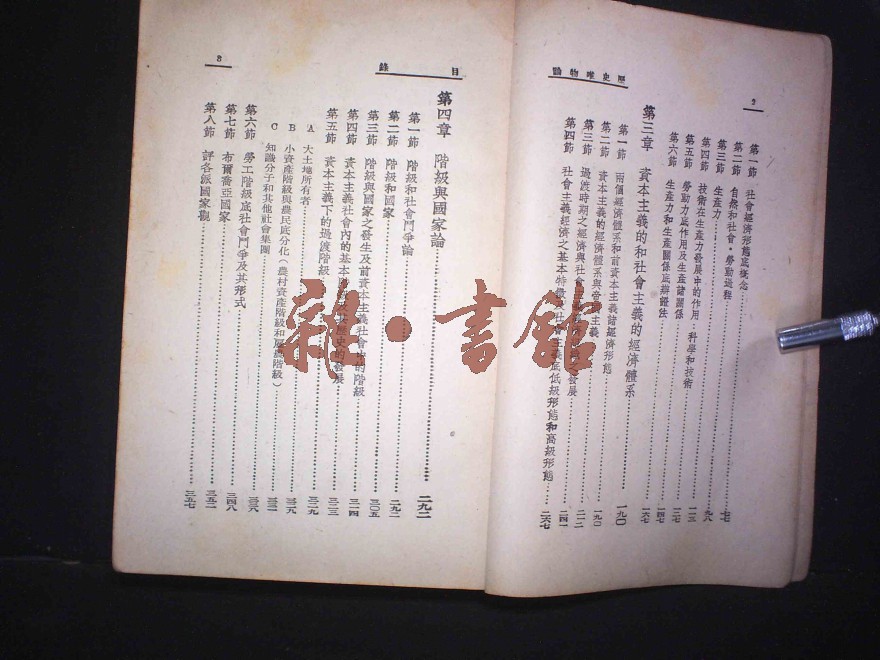 2
歷史唯物論
第一節 社會經濟形態底概念
第二節 自然和社會·勞動過程
第三節 生產力
第四節 技術在生產力發展中的作用·科學和技術
第五節 勞動力底作用及生產諸關係
第六節 生產力和生產關係底辯證法
第三章 資本主義的和社會主義的經濟體系
第一節 兩個經濟體系和前資本主義諸經濟形態
第二節 資本主義的經濟體系與帝國主義
第三節 過渡時期之經濟與社會主義 之發展
第四節 社會主義經濟之基本特徵·社會主義底低級形態和高級形態
七七
九八
一一三
一二七
一四七
一六七
一九〇
一九〇
二一二
二四一
二六七
目錄
3
第四章 階級與國家論 二九二
第一節 階級和社會鬥爭論
第二節 階級和國家 二九二
第三節 階級與國家之發生及前資本主義社會 的階級 三〇五
第四節 資本主義社會內的基本階級 歷史的發展 三一四
第五節 資本主義下的過渡階級 三二三
A 大土地所有者 三二九
B 小資產階級與農民底分化(農村資產階級和 階級) 三二九
C 知識分子和其他社會集團 三三二
第六節 勞工階級底社會鬥爭及其形式 三三六
第七節 布爾喬亞國家 三四八
第八節 評各派國家觀 三五二
三五七
雜·書館